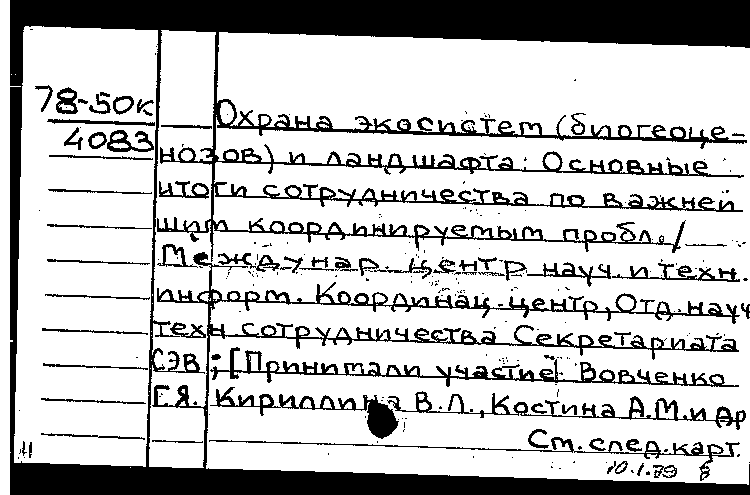 78-50к
4083
Охрана экосистем (биогеоце-
нозов) и ландшафта: Основные
итоги сотрудничества по важней
шим координируемым пробл. /
Междунар. центр науч. и техн.
информ. Координац. центр, Отд. науч
техн сотрудничества Секретариата
СЭВ; [Принимали участие] Вовченко
Г.Я. Кириллина В.Л., Костина А.М. и др
См. след. карт.
10.1.79